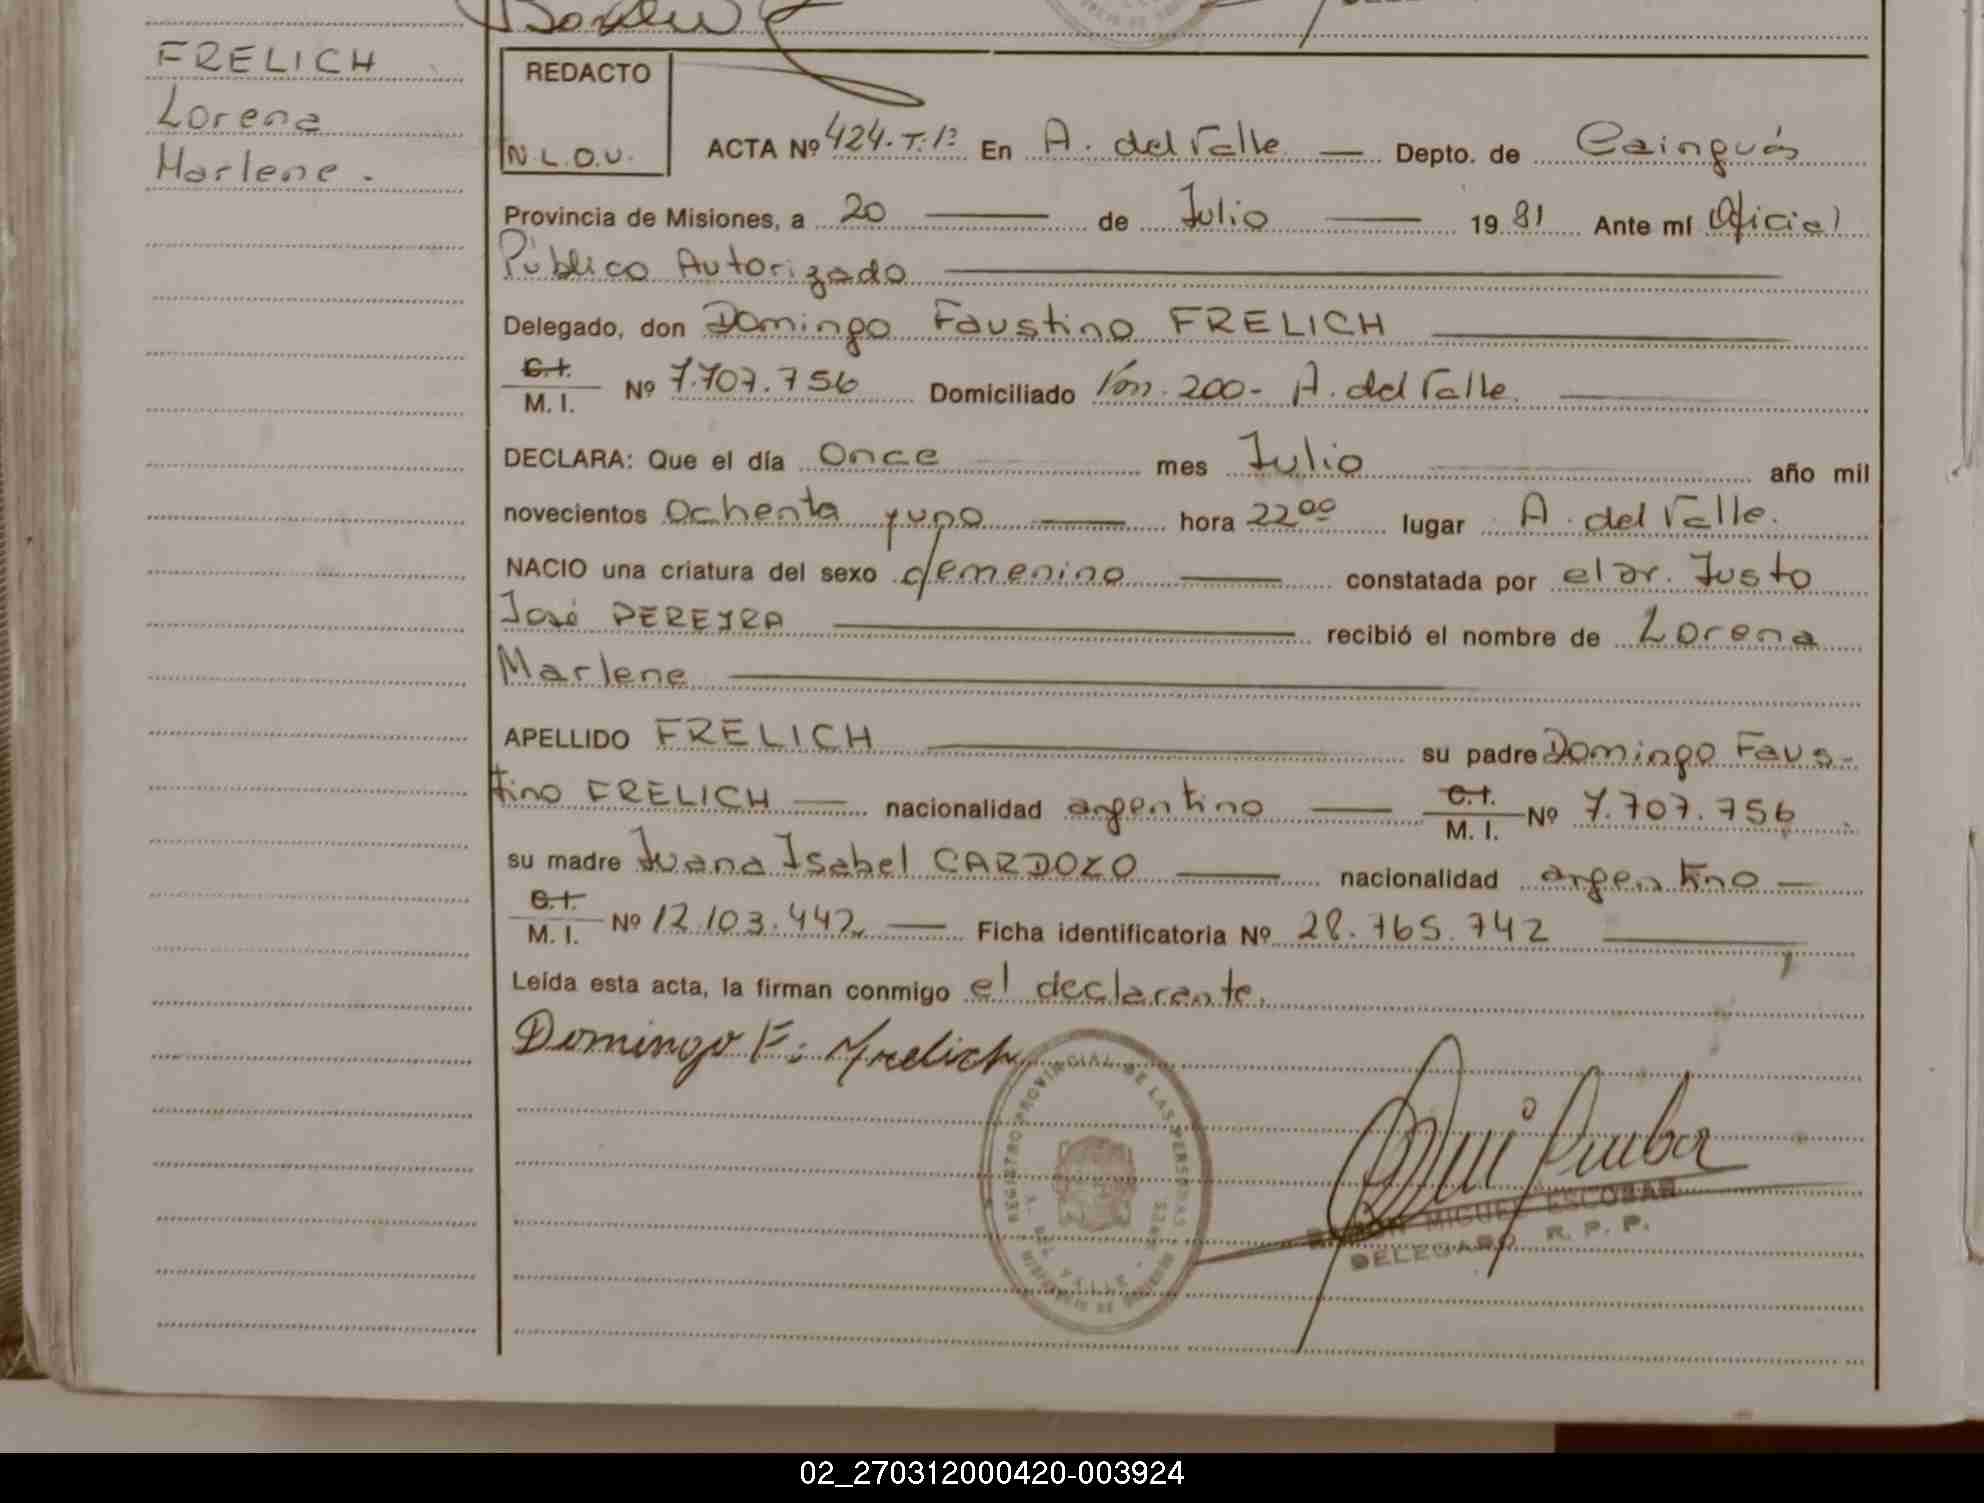 FRELICH
Lorena
Marlene.
REDACTO
N.L.O.V.
ACTA Nº 424.T.1º En A. del Valle — Depto. de Cainguás
Provincia de Misiones, a 20 — de Julio — 1981 Ante mí Oficial
Público Autorizado
Delegado, don Domingo Faustino FRELICH
C.I.
M. I. Nº 7.707.756 Domiciliado Km. 200- A. del Valle
DECLARA: Que el día Once mes Julio año mil
novecientos Ochenta y uno — hora 22⁰⁰ lugar A. del Valle.
NACIO una criatura del sexo femenino — constatada por el Dr. Justo
José PEREYRA — recibió el nombre de Lorena
Marlene
APELLIDO FRELICH — su padre Domingo Faus-
tino FRELICH — nacionalidad argentino — C.I.
M. I. Nº 7.707.756
su madre Juana Isabel CARDOZO — nacionalidad argentino —
C.I.
M. I. Nº 12.103.442 — Ficha identificatoria Nº 28.765.742
Leída esta acta, la firman conmigo el declarante.
Domingo F. Frelich
REGISTRO PROVINCIAL DE LAS PERSONAS
A. DEL VALLE
RAMON MIGUEL ESCOBAR
DELEGADO R. P. P.
02_270312000420-003924